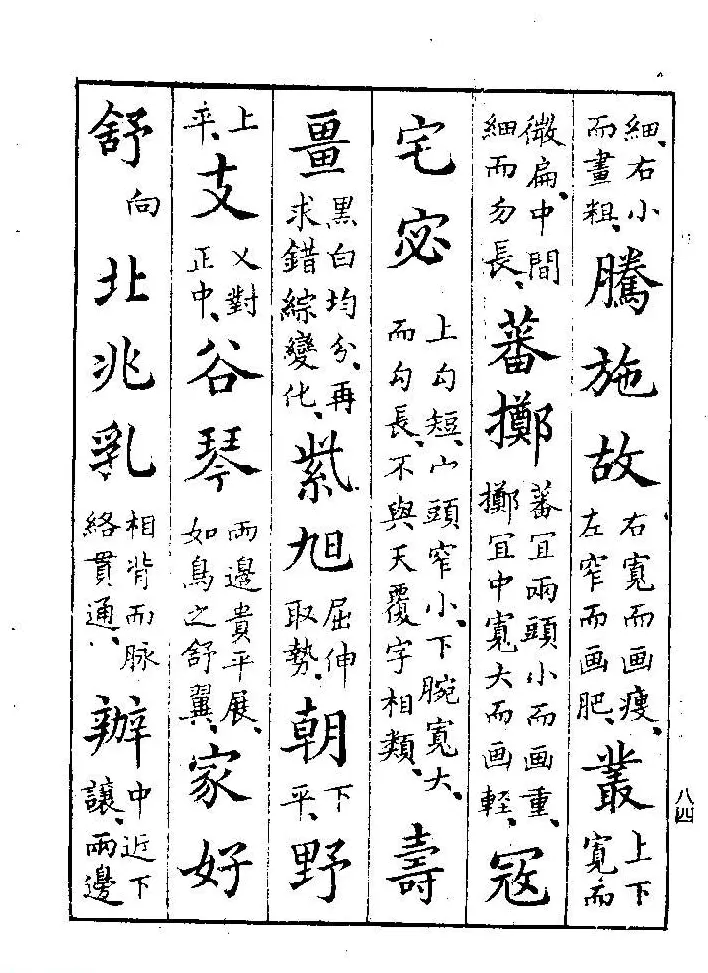 細、右小而畫粗、騰施故右寬而画瘦、左窄而画肥、叢上下寬而
微扁、中間細而勿長、蕃擲蕃冝兩頭小而画重、擲冝中寬大而画輕、冦
宅宓上勾短、宀頭窄小、下腕寬大、而勾長、不與天覆字相類、壽
畺黑白均分、再求錯綜變化、紫旭屈伸取勢、朝下平、野
上平、支乂對正中、谷琴兩邊貴平展、如鳥之舒翼、家好
舒向北兆乳相背而脉絡貫通、辦中近下讓、兩邊
八四